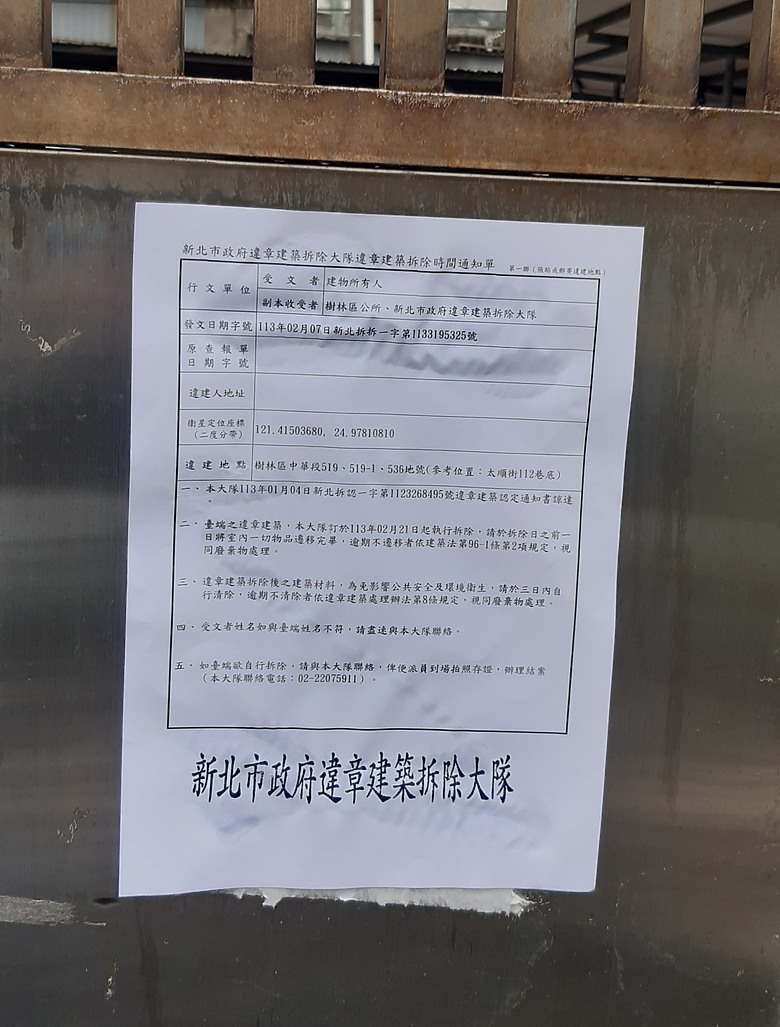 新北市政府違章建築拆除大隊違章建築拆除時間通知單 第一聯(張貼或郵寄違建地點)
行文單位 受文者 建物所有人
副本收受者 樹林區公所、新北市政府違章建築拆除大隊
發文日期字號 113年02月07日新北拆拆一字第1133195325號
原查報單
日期字號
違建人地址
衛星定位座標
(二度分帶) 121.41503680, 24.97810810
違建地點 樹林區中華段519、519-1、536地號(參考位置：太順街112巷底)
一、本大隊113年01月04日新北拆認一字第1123268495號違章建築認定通知書諒達
。
二、臺端之違章建築，本大隊訂於113年02月21日起執行拆除，請於拆除日之前一
日將室內一切物品遷移完畢，逾期不遷移者依建築法第96-1條第2項規定，視
同廢棄物處理。
三、違章建築拆除後之建築材料，為免影響公共安全及環境衛生，請於三日內自
行清除，逾期不清除者依違章建築處理辦法第8條規定，視同廢棄物處理。
四、受文者姓名如與臺端姓名不符，請儘速與本大隊聯絡。
五、如臺端欲自行拆除，請與本大隊聯絡，俾便派員到場拍照存證，辦理結案
(本大隊聯絡電話：02-22075911)。
新北市政府違章建築拆除大隊